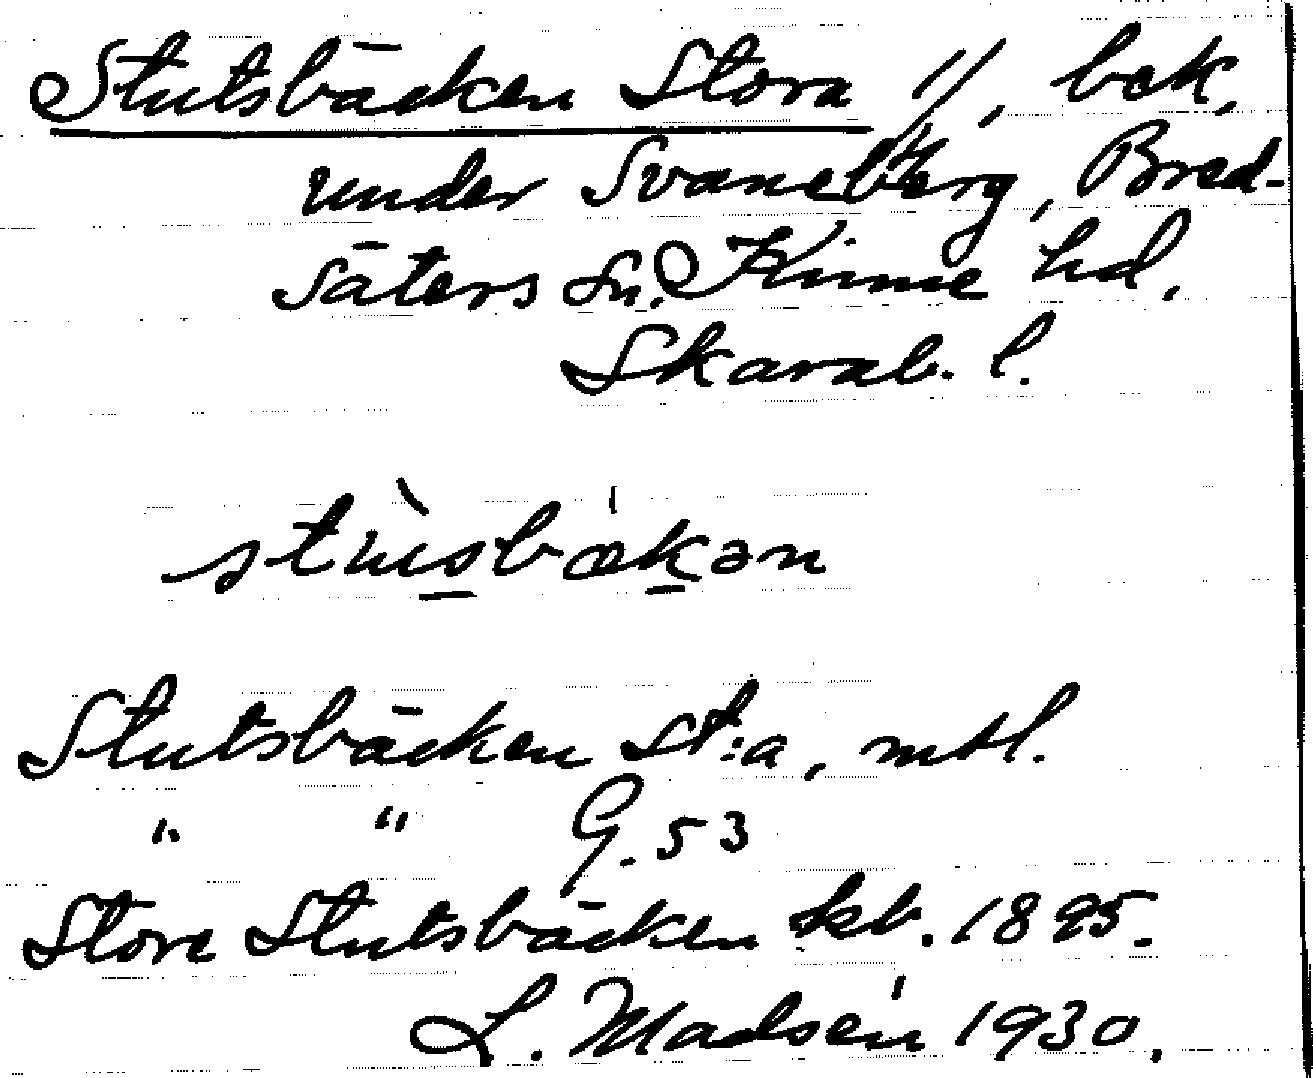 Stutsbäcken Stora 1/1, bek,
under Svaneberg, Bred-
säters sn. Kinne hd,
Skarab. l.
stusbækən
Stutsbäcken St:a, mtl.
" " G. 53
Stora Stutsbäcken kb. 1895.
L. Madsén 1930.